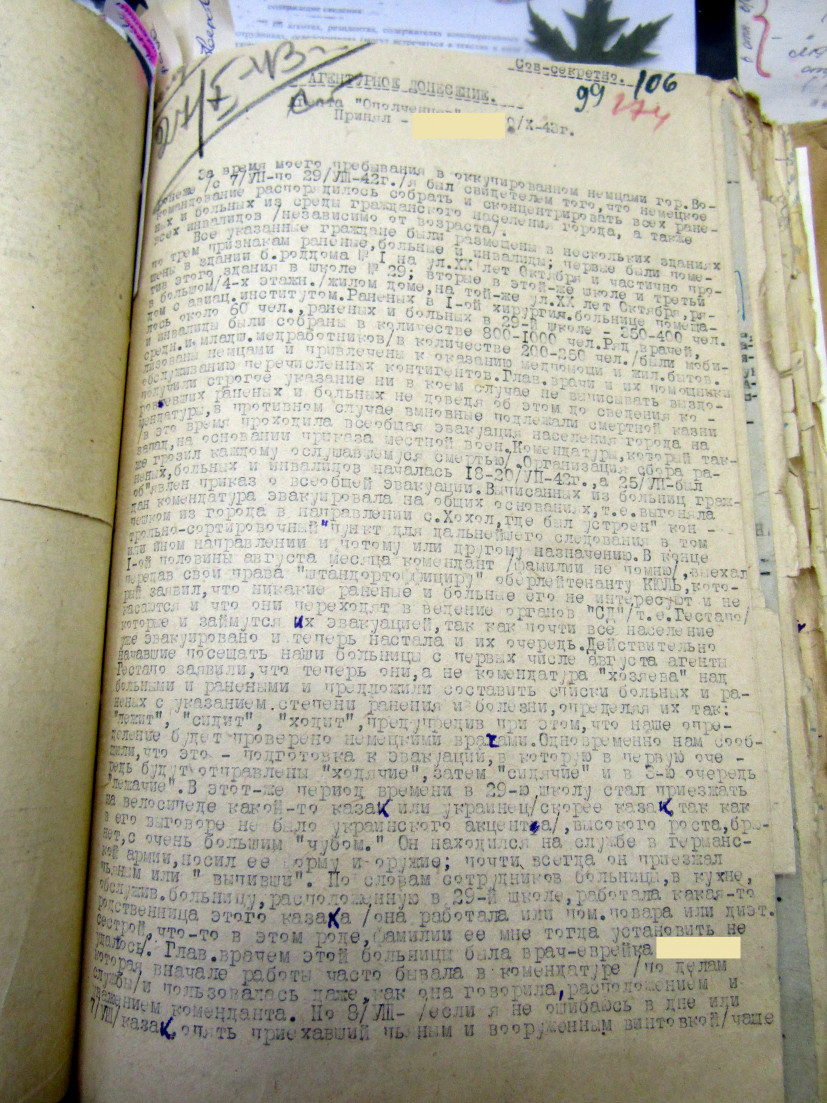 содержащие сведения
агентах, резидентах, содержателях конспиративных
встречаться в текстах
Сов-секретно.
106
99
174
27/X-43г
АГЕНТУРНОЕ ДОНЕСЕНИЕ.
Агента "Ополченец"
Принял - 0/X-43г.
За время моего пребывания в оккупированном немцами гор.Во-
ронеже /с 7/VII-по 29/VIII-42г./я был свидетелем того,что немецкое
командование распорядилось собрать и сконцентрировать всех ране-
ных и больных из среды гражданского населения города, а также
всех инвалидов /независимо от возраста/.
Все указанные граждане были размещены в нескольких зданиях
по трем признакам раненые,больные и инвалиды; первые были поме-
щены в здании б.роддома № I на ул.XX лет Октября и частично про-
тив этого здания в школе № 29; вторые в этой-же школе и третьи
в большом/4-х этажн./жилом доме,на той-же ул.XX лет Октября,ря-
дом с авиац.институтом.Раненых в I-ой хирургич.больнице помеща-
лось около 60 чел.,раненых и больных в 29-й школе - 350-400 чел.
и инвалиды были собраны в количестве 800-1000 чел.Ряд врачей,
средн.и младш.медработников/в количестве 200-250 чел./были моби-
лизованы немцами и привлечены к оказанию медпомощи и жил.бытов.
обслуживанию перечисленных контигентов.Глав.врачи и их помощники
получили строгое указание ни в коем случае не выписывать выздо-
ровевших раненых и больных не доведя об этом до сведения ко -
мендатуры,в противном случае виновные подлежали смертной казни
/в это время проходила всеобщая эвакуация населения города на
запад,на основании приказа местной воен.Комендатуры,который так-
же грозил каждому ослушавшемуся смертью/.Организация сбора ра-
неных,больных и инвалидов началась 18-20/VII-42г.,а 25/VII-был
об"явлен приказ о всеобщей эвакуации.Выписанных из больниц граж-
дан комендатура эвакуировала на общих основаниях,т.е.выгоняла
пешком из города в направлении с.Хохол,где был устроен" кон -
трольно-сортировочный"пункт для дальнейшего следования в том
или ином направлении и потому или другому назначению.В конце
I-ой половины августа месяца комендант /фамилии не помню/,выехал
передав свои права "штандортофициру" оберлейтенанту КЮЛЬ,кото-
рый заявил,что никакие раненые и больные его не интересуют и не
касаются и что они переходят в ведение органов "СД"/т.е.Гестапо/
которые и займутся их эвакуацией,так как почти все население
уже эвакуировано и теперь настала и их очередь.Действительно
начавшие посещать наши больницы с первых числе августа агенты
Гестапо заявили,что теперь они,а не комендатура "хозяева" над
больными и ранеными и предложили составить списки больных и ра-
неных с указанием.степени ранения и болезни,определяя их так:
"лежит", "сидит", "ходит",предупредив при этом,что наше опре-
деление будет проверено немецкими врачами.Одновременно нам сооб-
щили,что это - подготовка к эвакуации,в которую в первую оче -
редь будут отправлены "ходячие",затем "сидячие" и в 3-ю очередь
"лежачие".В этот-же период времени в 29-ю школу стал приезжать
на велосипеде какой-то казак или украинец/скорее казак,так как
в его выговоре не было украинского акцента/,высокого роста,брю-
нет,с очень большим "чубом." Он находился на службе в германс-
кой армии,носил ее форму и оружие; почти всегда он приезжал
пьяным или " выпивши". По словам сотрудников больницы,в кухне,
обслужив.больницу,расположенную в 29-й школе,работала какая-то
родственница этого казака /она работала или пом.повара или диэт.
сестрой,что-то в этом роде,фамилии ее мне тогда установить не
удалось/. Глав.врачем этой больницы была врач-еврейка
которая вначале работы часто бывала в комендатуре /по делам
службы/и пользовалась даже,как она говорила,расположением и
уважением коменданта. По 8/VIII- /если я не ошибаюсь в дне или
7/VIII/казак,опять приехавший пьяным и вооруженным винтовкой/чаще